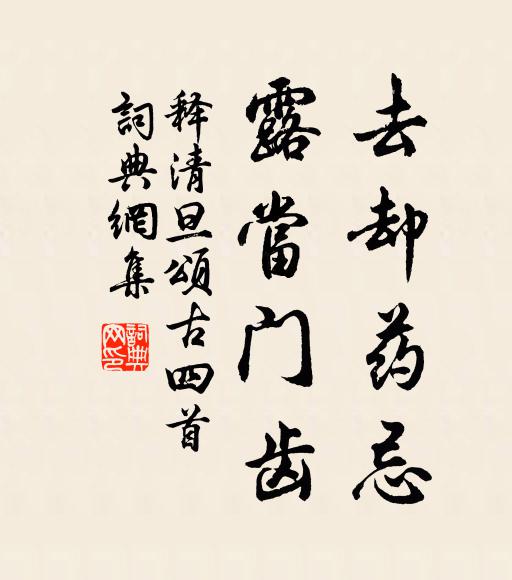 去却药忌
露當门齿
释清旦頌古四首
詞典網集
詞典網印